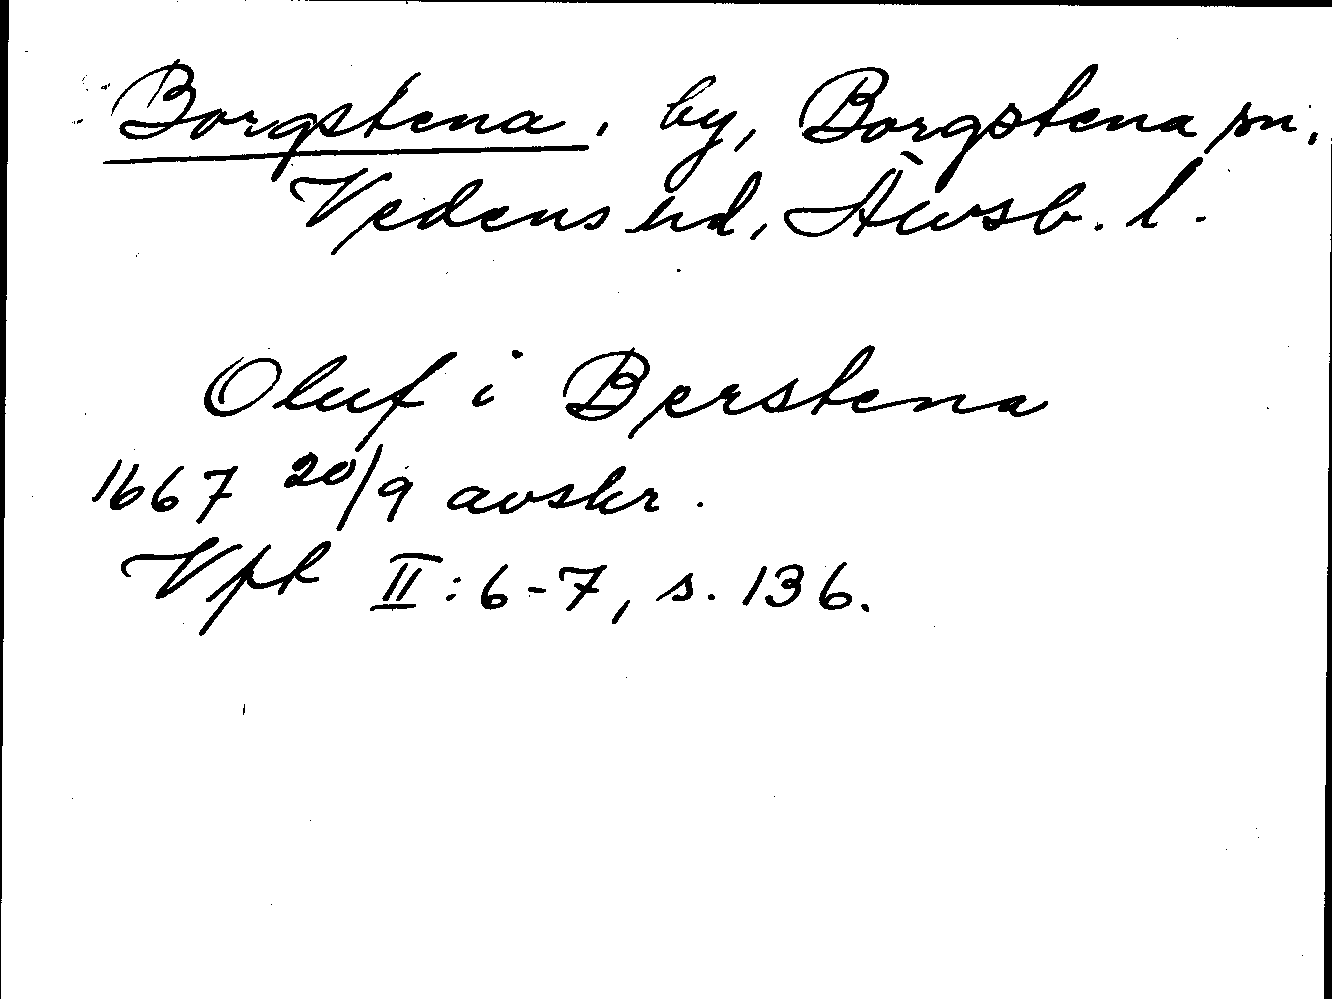 Borgstena, by, Borgstena sn.
Vedens hd, Älvsb. l.
Oluf i Berstena
1667 20/9 avskr.
Vpk II:6-7, s. 136.